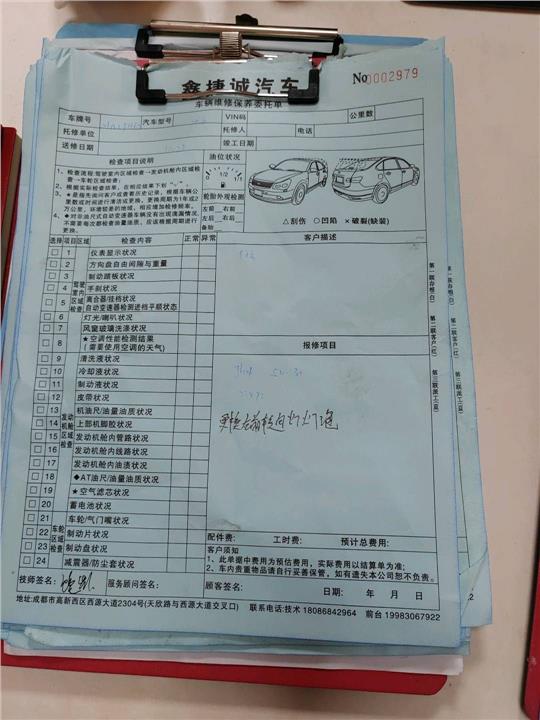 鑫捷诚汽车
No 0002979
车辆维修保养委托单
车牌号 汽车型号 VIN码 公里数
托修单位 托修人 电话
送修日期 竣工日期
检查项目说明
1、检查流程:驾驶室内区域检查→发动机舱内区域检查→车轮区域检查;
2、根据实际检查结果,在相应结果下划“√”。
3、★是指先询问客户或查看历史记录,根据车辆公里数或时间进行清洁或更换。更换周期为1年或2万公里,环境较差的地域,相应增加检修频率。
4、◆对非油尺式自动变速器车辆没有出现滴漏情况,不需要每次都检查油量油质,应该根据周期进行更换。
油位状况
轮胎外观检测
左前 右前
左后 右后
备胎
△刮伤 ○凹陷 ×破裂(缺装)
选择 项目 区域 检查内容 正常 异常
客户描述
驾驶室内区域检查
1 仪表显示状况
2 方向盘自由间隙与重量
3 制动踏板状况
4 手刹状况
5 离合器/挂档状况
自动变速器检测进档平顺状态
6 灯光/喇叭状况
7 风窗玻璃洗涤状况
8 ★空调性能检测结果
(需要使用空调的天气)
报修项目
发动机舱区域检查
9 清洗液状况
10 冷却液状况
11 制动液状况
12 皮带状况
13 机油尺/油量油质状况
14 上部机脚胶状况
15 发动机舱内管路状况
16 发动机舱内线路状况
17 发动机舱内油渍状况
18 ◆AT油尺/油量油质状况
19 ★空气滤芯状况
20 蓄电池状况
更换右前转向灯灯泡
车轮区域检查
21 车轮/气门嘴状况
22 制动片状况
23 制动盘状况
24 减震器/防尘套状况
配件费: 工时费: 预计总费用:
客户须知
1、此单据中费用为预估费用,实际费用以结算单为准;
2、车内贵重物品请自行妥善保管,如有遗失本公司恕不负责。
技师签名: 服务顾问签名: 顾客签名: 日期: 年 月 日
地址:成都市高新西区西源大道2304号(天欣路与西源大道交叉口) 联系电话:技术 18086842964 前台 19983067922
第一联存根(白) 第二联客户(红) 第三联派工(蓝)
第一联存根(白) 第二联客户(红) 第三联派工(蓝)